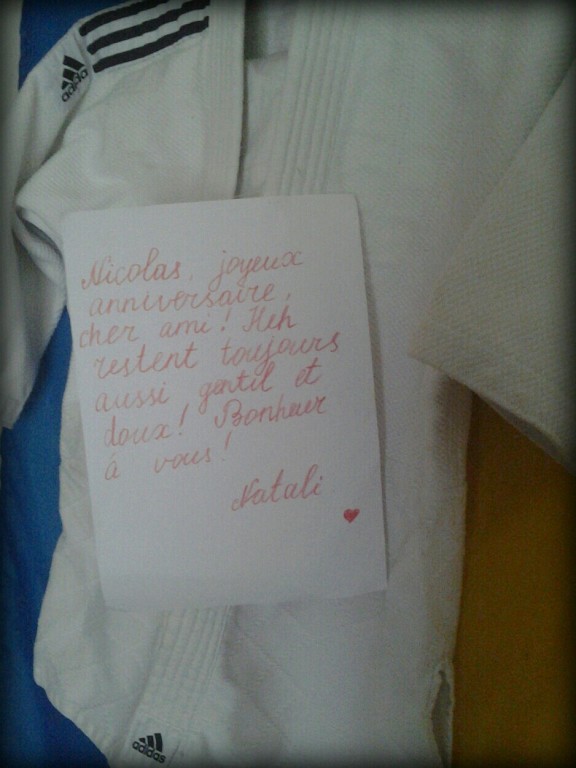 adidas
Nicolas, joyeux
anniversaire,
cher ami! Heh
restent toujours
aussi gentil et
doux! Bonheur
à vous!
Natali
adidas